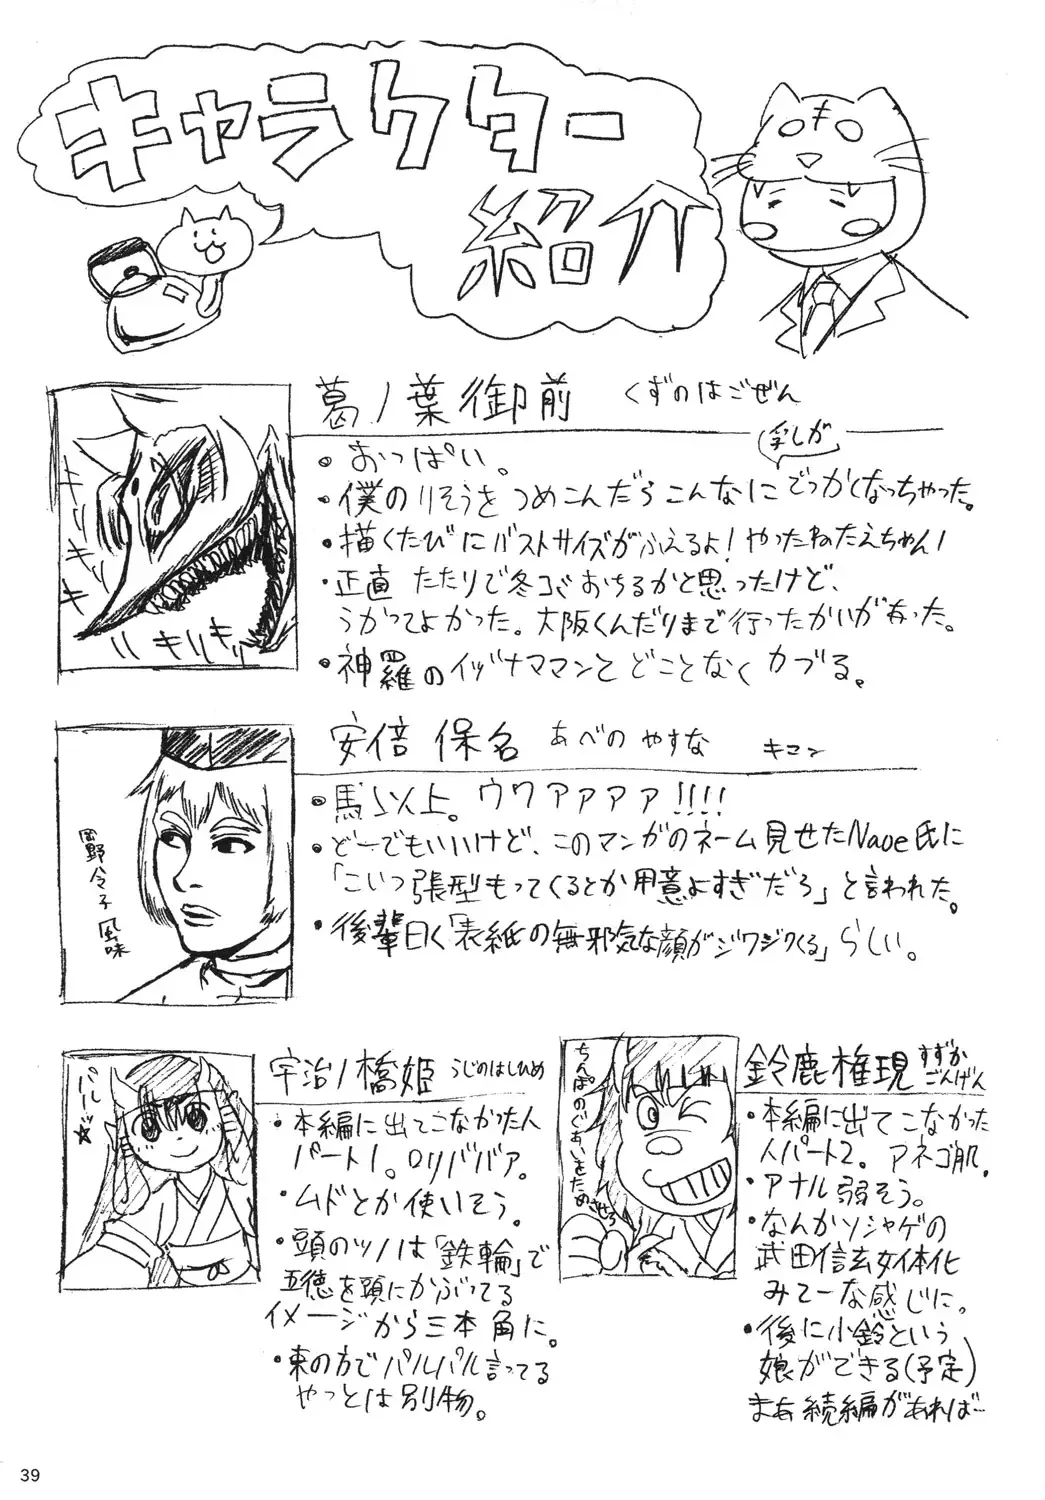 キャラクター
紹介
葛ノ葉御前 くずのはごぜん
・おっぱい。
乳しが
・僕のりそうをつめこんだらこんなにでっかくなっちゃった。
・描くたびにバストサイズがふえるよ!やったねたえちゃん!
・正直たたりで冬コミおちるかと思ったけど、
うかってよかった。大阪くんだりまで行ったかいがあった。
・神羅のイヅナママンとどことなくカブる。
キリキリッ
安倍 保名 あべのやすな キコン
・馬以上。ウワァァァァ!!!!
・どーでもいいけど、このマンガのネーム見せたNaoe氏に
「こいつ張型もってくるとか用意よすぎだろ」と言われた。
・後輩曰く「表紙の無邪気な顔がジワジワくる」らしい。
岡野令子風味
宇治ノ橋姫 うじのはしひめ
・本編に出てこなかった人
パート1。ロリババア。
・ムドとか使いそう。
・頭のツノは「鉄輪」で
五徳を頭にかぶってる
イメージから三本角に。
・東の方でパルパル言ってる
やっとは別物。
パルーッ☆
鈴鹿権現 すずかごんげん
・本編に出てこなかった
人パート2。アネゴ肌。
・アナル弱そう。
・なんかソシャゲの
武田信玄女体化
みてーな感じに。
・後に小鈴という
娘ができる(予定)
まあ続編があれば…
ちんぽのぐあいをためさせろ
39